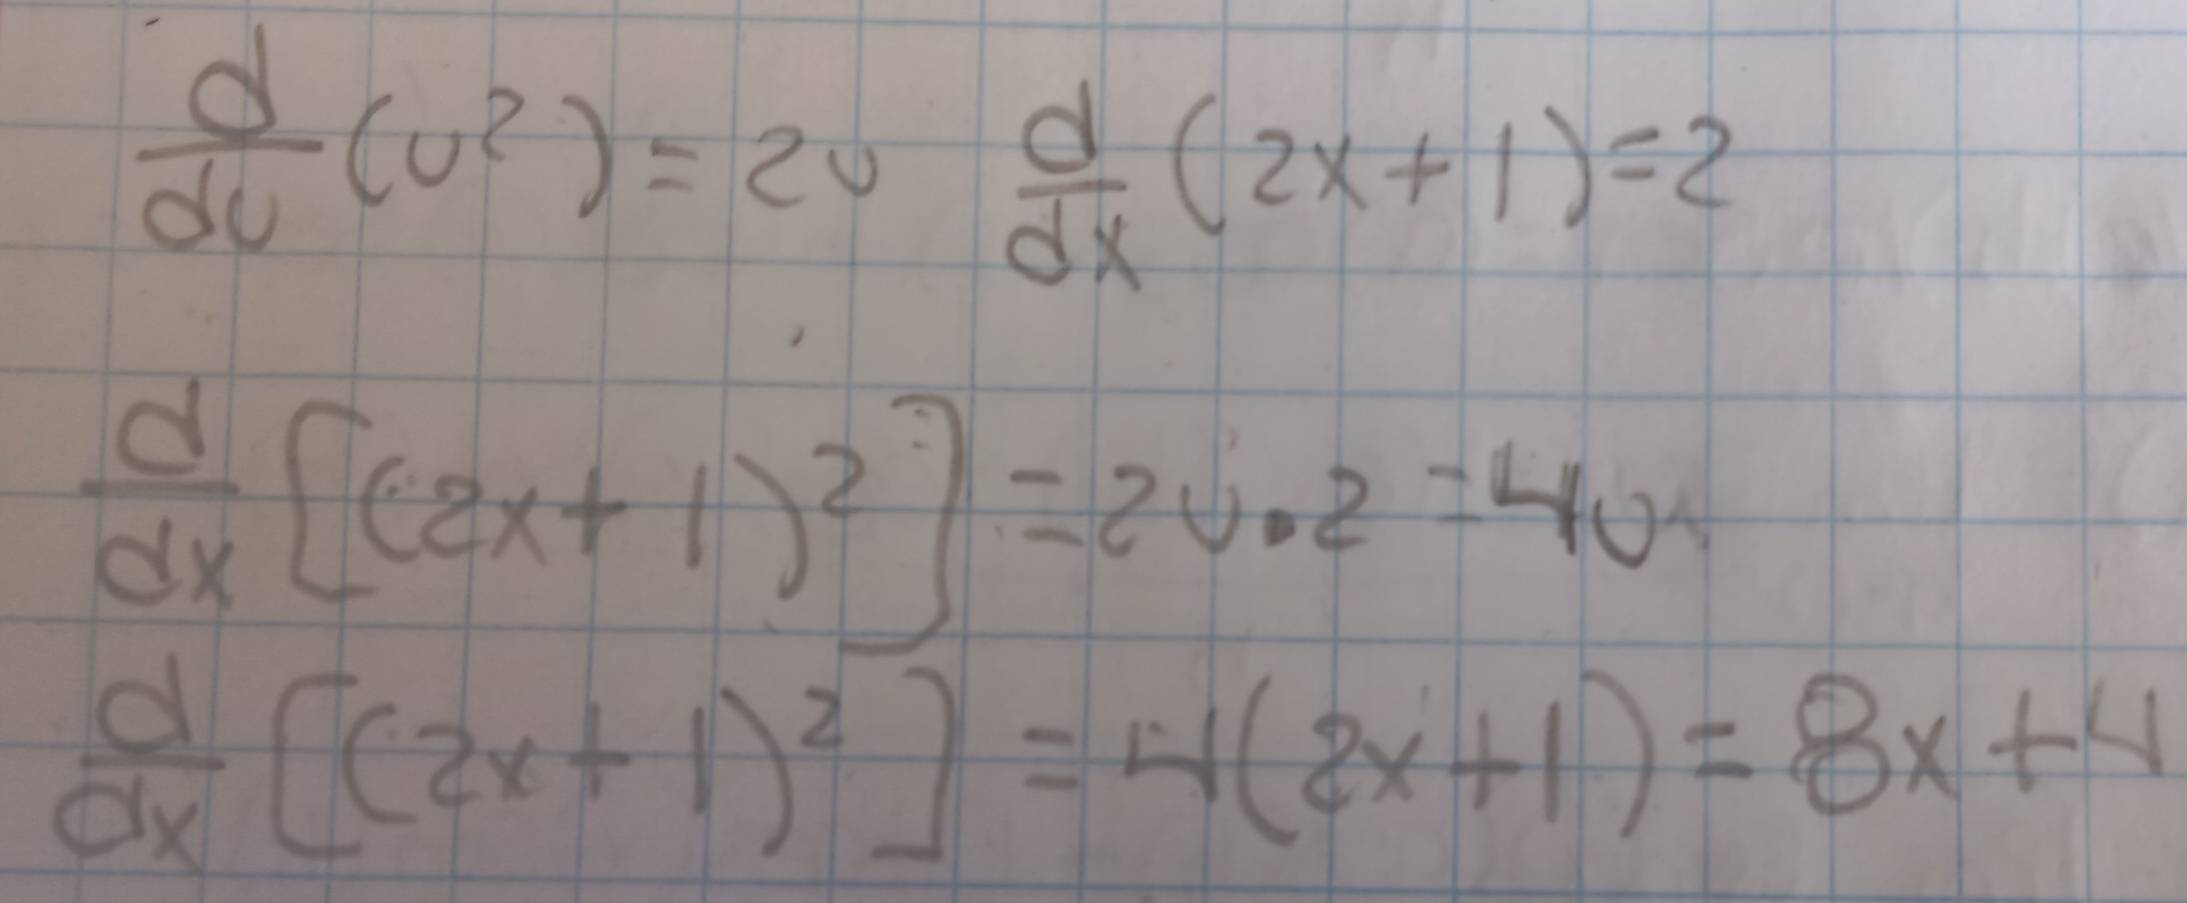 d/du (u²) = 2u d/dx (2x+1) = 2
d/dx [(2x+1)²] = 2u·2 = 4u
d/dx [(2x+1)²] = 4(2x+1) = 8x+4